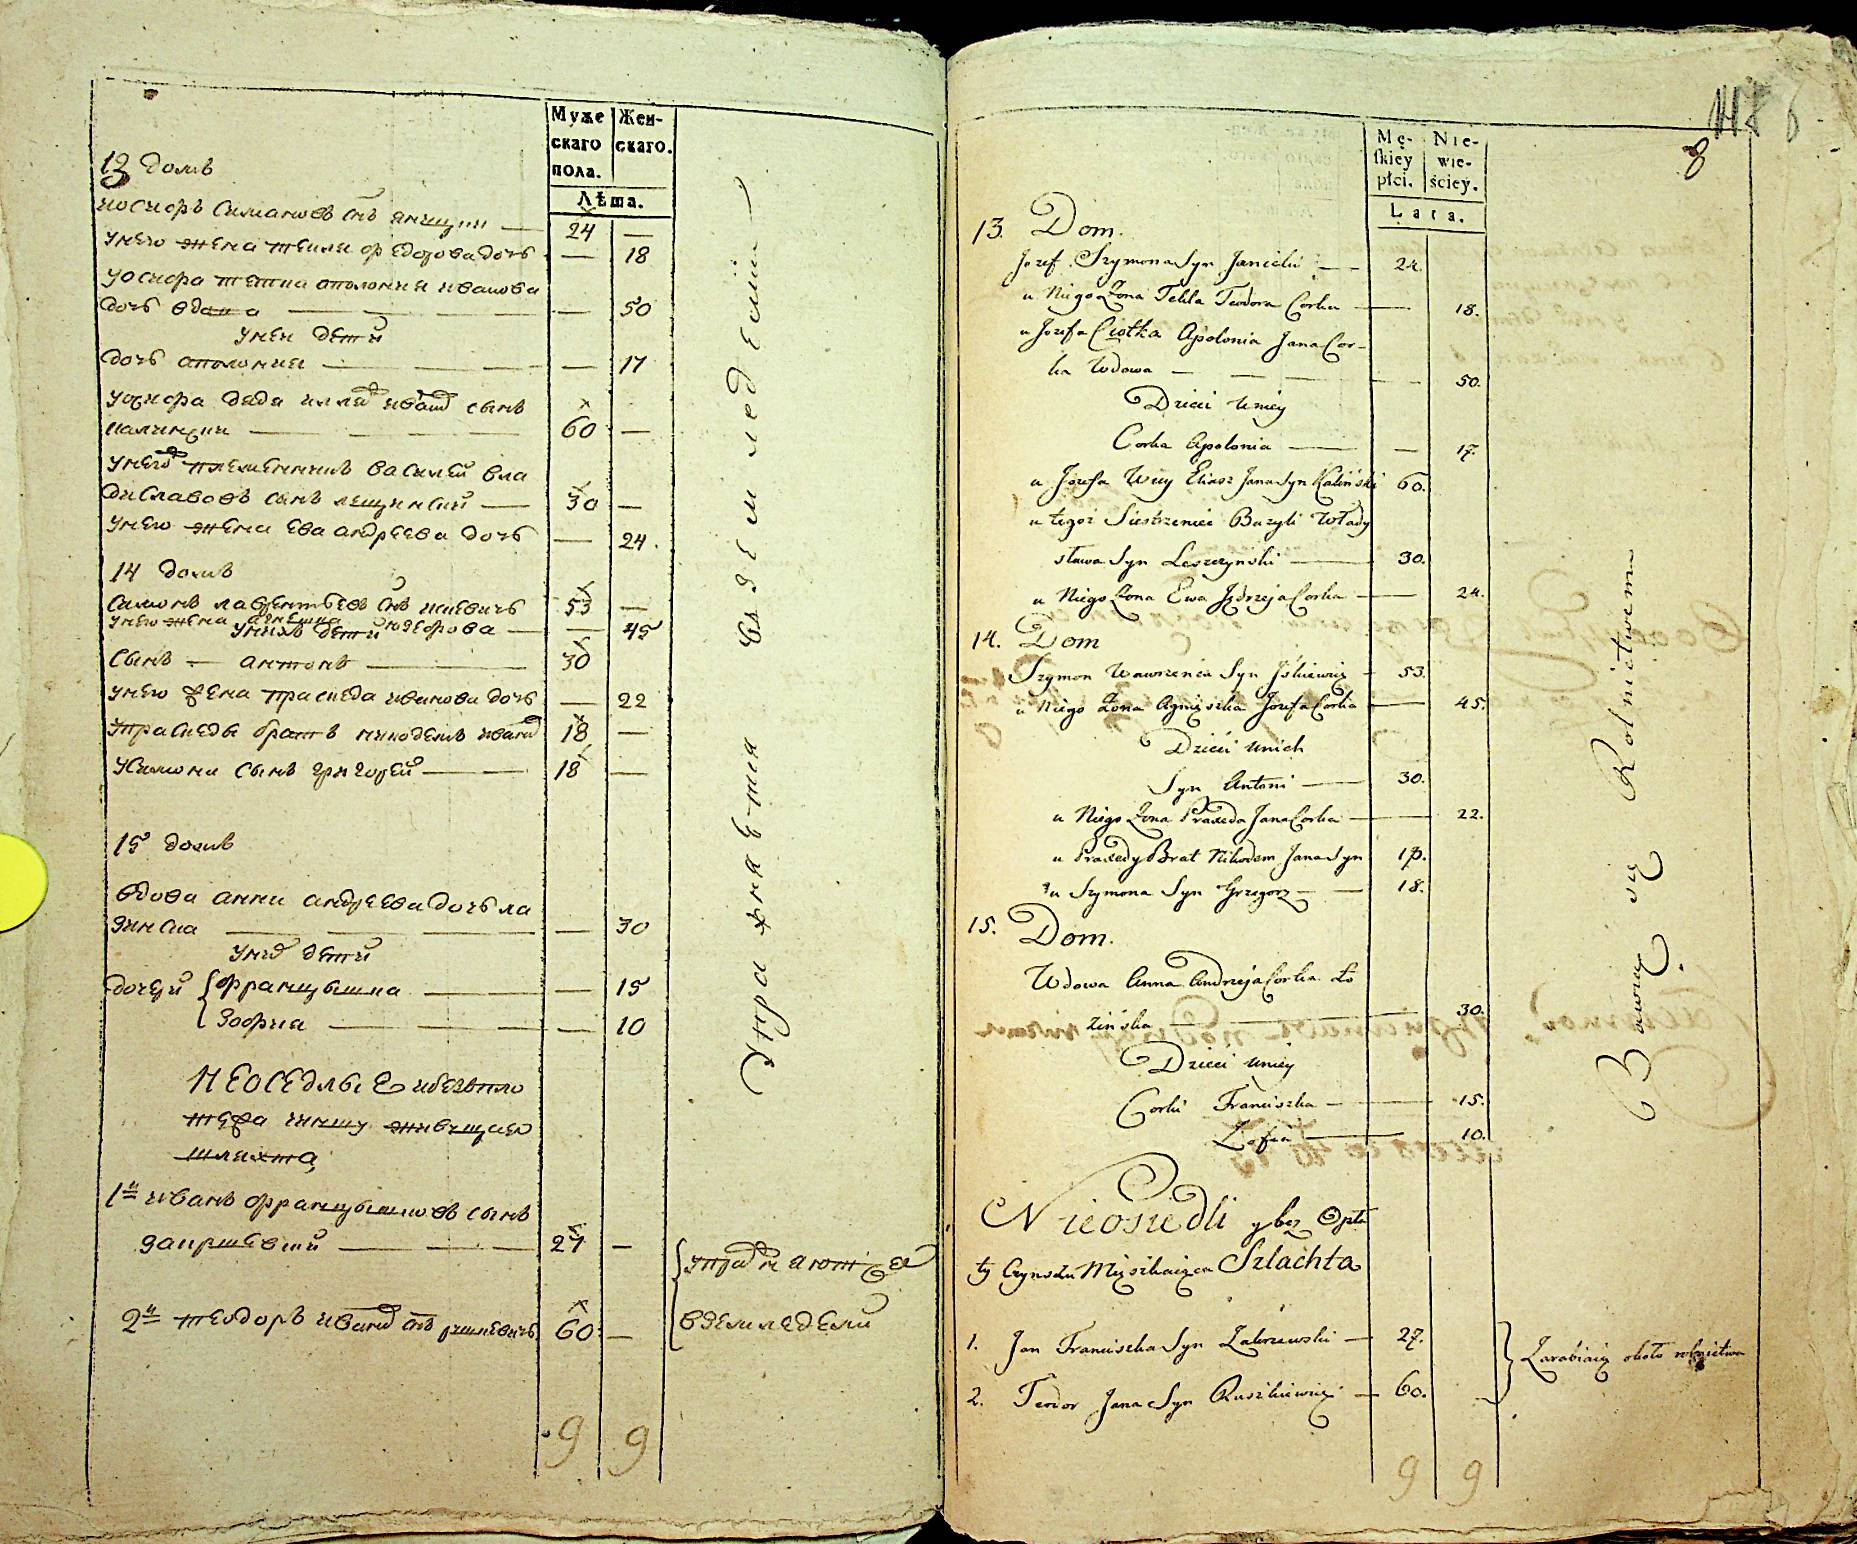 Муже
скаго
пола.
Жен-
скаго.
Лѣта.
13 домъ
иосифъ симановъ снъ яницки — 24 —
унего жена текли федорова дочь — 18
уосифа тетка аполония иванова
дочь вдова — 50
унеи дети
дочь аполония — 17
уосифа дядя илляш иванов сынъ
калински — 60 —
унего племенникъ василеи вла
диславовъ сынъ лещински — 30 —
унего жена ева андреева дочь — 24
14 домъ
симонъ лаврентьевъ снъ искевичъ 53 —
унего жена агнешка юзефова — 45
унихъ дети
сынъ — антонъ — 30
унего жена праседа иванова дочь — 22
упраседы братъ никодемъ иванов 18 —
усимона сынъ григорей — 18 —
15 домъ
вдова анна андреева дочь ла
зинска — 30
унеи дети
дочери францышка — 15
зофия — 10
неоседлые ибезъпло
тежа чиншу живущая
шляхта
1й иванъ францышковъ сынъ
закршевски — 27 —
2й теодоръ иванов снъ рушкевичъ 60 —
Упражняется въ земледелии
упражняются
вземледелии
9 9
8
Mę-
skiey
płci.
Nie-
wie-
ściey.
Lata.
13. Dom.
Jozef Szymona Syn Janicki — 24.
u Niego Żona Tekla Teodora Corka — 18.
u Jozefa Ciotka Apolonia Jana Cor-
ka Wdowa — 50.
Dzieci uniey
Corka Apolonia — 17.
u Jozefa Wuy Eliasz Jana Syn Kaliński 60.
u tegoż Siestrzeniec Bazyli Włady
sława Syn Leszczynski — 30.
u Niego Żona Ewa Jędrzeja Corka — 24.
14. Dom
Szymon Wawrzenca Syn Jskiewicz — 53.
u Niego Żona Agnieszka Jozefa Corka — 45.
Dzieci unich
Syn Antoni — 30.
u Niego Żona Praxeda Jana Corka — 22.
u Praxedy Brat Nikodem Jana Syn 18.
u Szymona Syn Grzegorz — 18.
15. Dom.
Wdowa Anna Andrzeja Corka Ło
zińska — 30.
Dzieci uniey
Corki Franciszka — 15.
Zofia — 10.
Nieosiedli y bez Opła
ty Czynszu Mięszkaiąca Szlachta
1. Jan Franciszka Syn Zakrzewski — 27.
2. Teodor Jana Syn Ruszkiewicz — 60.
Bawią się Rolnictwem
Zarabiaią około rolnictwa
9 9